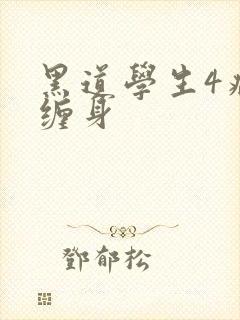 黑道學生4
缠身
鄧郁松